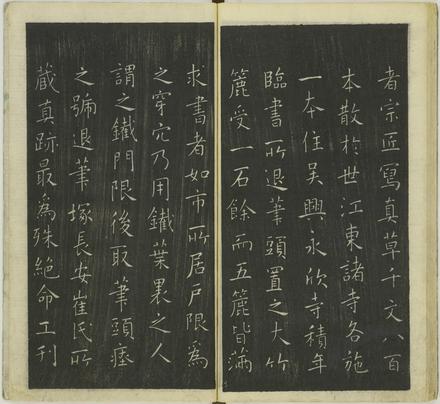 者宗匠寫真草千文八百
本散於世江東諸寺各施
一本住吳興永欣寺積年
臨書所退筆頭置之大竹
簏受一石餘而五簏皆滿
求書者如市所居戶限為
之穿穴乃用鐵葉裹之人
謂之鐵門限後取筆頭瘞
之號退筆塚長安崔氏所
藏真跡最為殊絕命工刊